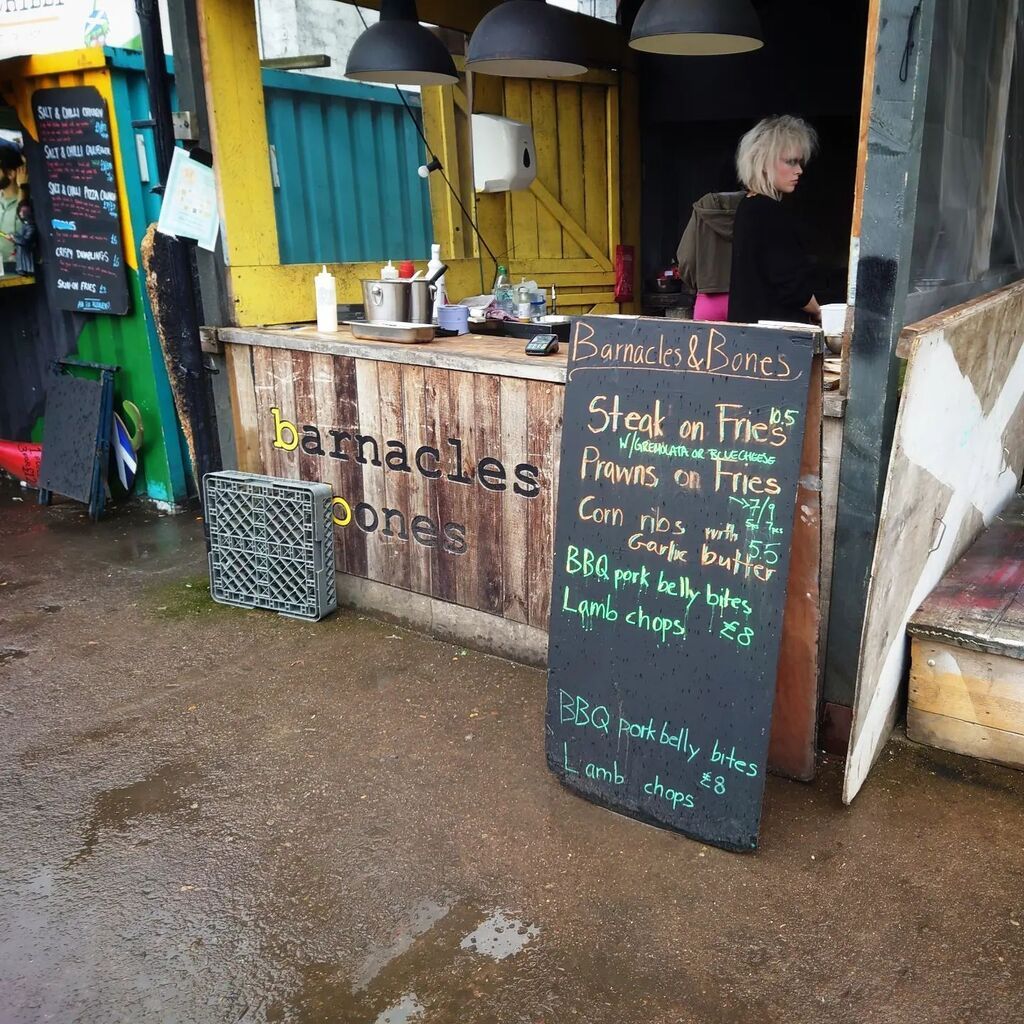 SALT & CHILLI CHICKEN
SALT & CHILLI CAULIFLOWER
SALT & CHILLI PIZZA CRUNCH
CRISPY DUMPLINGS £5
SKIN-ON FRIES £
barnacles
bones
Barnacles & Bones
Steak on Fries 10.5
W/ GREMOLATA OR BLUE CHEESE
Prawns on Fries
7/9
Corn ribs with
Garlic butter 5.5
BBQ pork belly bites
Lamb chops £8
BBQ pork belly bites
Lamb chops £8